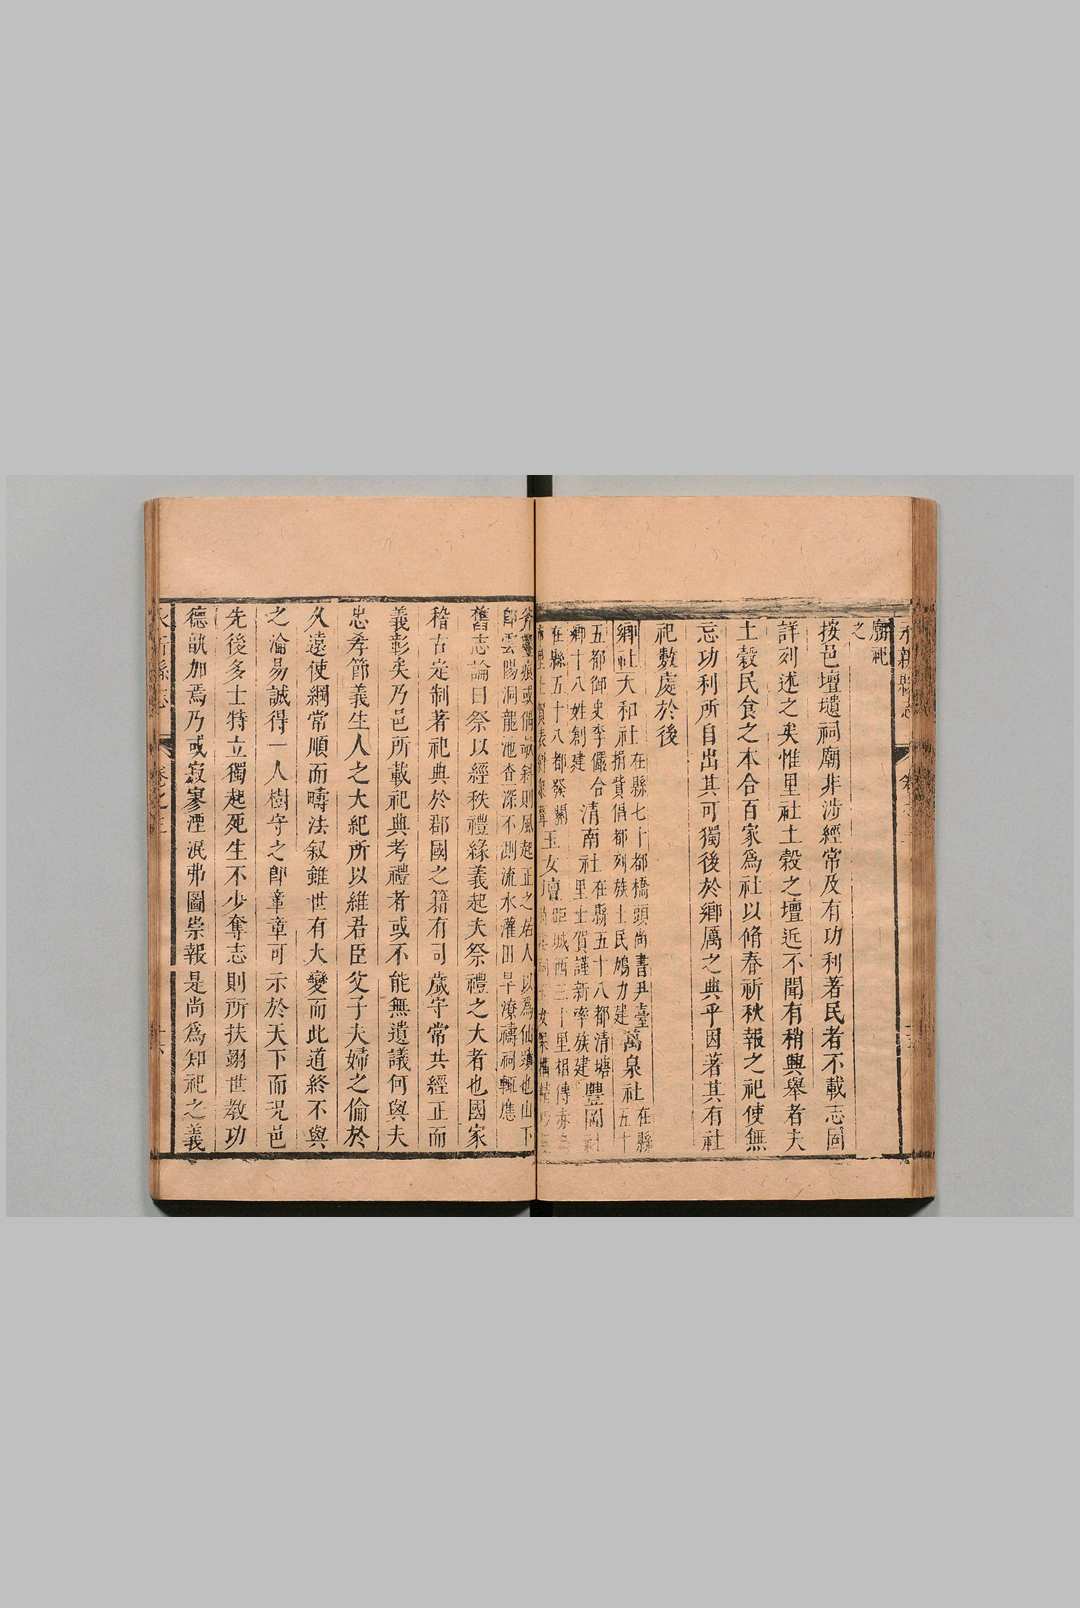 永新縣志
廟祀
之
按邑壇壝祠廟非涉經常及有功利著民者不載志固
詳列述之矣惟里社土穀之壇近不聞有稍興舉者夫
土穀民食之本合百家爲社以脩春祈秋報之祀使無
忘功利所自出其可獨後於鄉厲之典乎因著其有社
祀數處於後
鄉社大和社在縣七十都橋頭尚書尹臺萬泉社在縣五十
五都御史李儼合捐貲倡都列族士民鳩力建清南社在縣五十八都清塘
鄉十八姓創建里士賀謹新率族建豐岡社
在縣五十八都發關玉女 距城西三十里相傳
斧鑿痕或倘 斜則風起正之佑人以爲仙蹟也山下
卽雲陽洞龍池杳深不測流水灌田旱潦禱祠輒應
舊志論曰祭以經秩禮緣義起夫祭禮之大者也國家
稽古定制著祀典於郡國之籍有司歲守常共經正而
義彰矣乃邑所載祀典考禮者或不能無遺議何與夫
忠孝節義生人之大紀所以維君臣父子夫婦之倫於
久遠使綱常順而疇法叙雖世有大變而此道終不與
之淪易誠得一人樹守之卽章章可示於天下而况邑
先後多士特立獨起死生不少奪志則所扶翊世教功
德孰加焉乃或寂寥湮泯弗圖崇報是尚爲知祀之義
永新縣志
卷之三